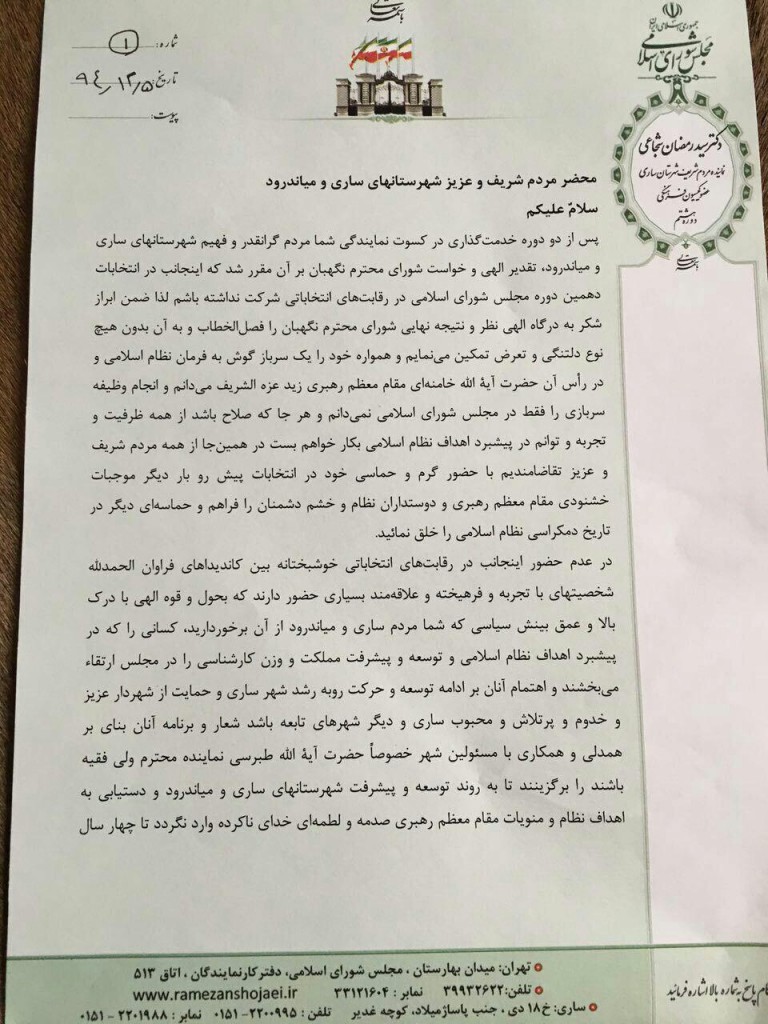 باسمه تعالی
جمهوری اسلامی ایران
مجلس شورای اسلامی
شماره: ۱
تاریخ: ۹۴/۱۲/۵
پیوست:
دکتر سید رمضان شجاعی
نماینده مردم شریف شهرستان ساری
عضو کمیسیون فرهنگی
دوره هشتم
باسمه تعالی
محضر مردم شریف و عزیز شهرستانهای ساری و میاندرود
سلامٌ علیکم
پس از دو دوره خدمت‌گذاری در کسوت نمایندگی شما مردم گرانقدر و فهیم شهرستانهای ساری
و میاندرود، تقدیر الهی و خواست شورای محترم نگهبان بر آن مقرر شد که اینجانب در انتخابات
دهمین دوره مجلس شورای اسلامی در رقابت‌های انتخاباتی شرکت نداشته باشم لذا ضمن ابراز
شکر به درگاه الهی نظر و نتیجه نهایی شورای محترم نگهبان را فصل‌الخطاب و به آن بدون هیچ
نوع دلتنگی و تعرض تمکین می‌نمایم و همواره خود را یک سرباز گوش به فرمان نظام اسلامی و
در رأس آن حضرت آیة الله خامنه‌ای مقام معظم رهبری زید عزه الشریف می‌دانم و انجام وظیفه
سربازی را فقط در مجلس شورای اسلامی نمی‌دانم و هر جا که صلاح باشد از همه ظرفیت و
تجربه و توانم در پیشبرد اهداف نظام اسلامی بکار خواهم بست در همین‌جا از همه مردم شریف
و عزیز تقاضامندیم با حضور گرم و حماسی خود در انتخابات پیش رو بار دیگر موجبات
خشنودی مقام معظم رهبری و دوستداران نظام و خشم دشمنان را فراهم و حماسه‌ای دیگر در
تاریخ دمکراسی نظام اسلامی را خلق نمائید.
در عدم حضور اینجانب در رقابت‌های انتخاباتی خوشبختانه بین کاندیداهای فراوان الحمدلله
شخصیتهای با تجربه و فرهیخته و علاقه‌مند بسیاری حضور دارند که بحول و قوه الهی با درک
بالا و عمق بینش سیاسی که شما مردم ساری و میاندرود از آن برخوردارید، کسانی را که در
پیشبرد اهداف نظام اسلامی و توسعه و پیشرفت مملکت و وزن کارشناسی را در مجلس ارتقاء
می‌بخشند و اهتمام آنان بر ادامه توسعه و حرکت روبه رشد شهر ساری و حمایت از شهردار عزیز
و خدوم و پرتلاش و محبوب ساری و دیگر شهرهای تابعه باشد شعار و برنامه آنان بنای بر
همدلی و همکاری با مسئولین شهر خصوصاً حضرت آیة الله طبرسی نماینده محترم ولی فقیه
باشند را برگزینند تا به روند توسعه و پیشرفت شهرستانهای ساری و میاندرود و دستیابی به
اهداف نظام و منویات مقام معظم رهبری صدمه و لطمه‌ای خدای ناکرده وارد نگردد تا چهار سال
تهران: میدان بهارستان ، مجلس شورای اسلامی، دفتر کار نمایندگان ، اتاق ۵۱۳
تلفن: ۳۹۹۳۲۶۲۲ نمابر : ۳۳۱۲۱۶۰۴ www.ramezanshojaei.ir
ساری: خ ۱۸ دی ، جنب پاساژ میلاد، کوچه غدیر تلفن : ۲۲۰۰۹۹۵-۰۱۵۱ نمابر : ۲۲۰۱۹۸۸-۰۱۵۱
پاسخ به شماره بالا اشاره فرمائید